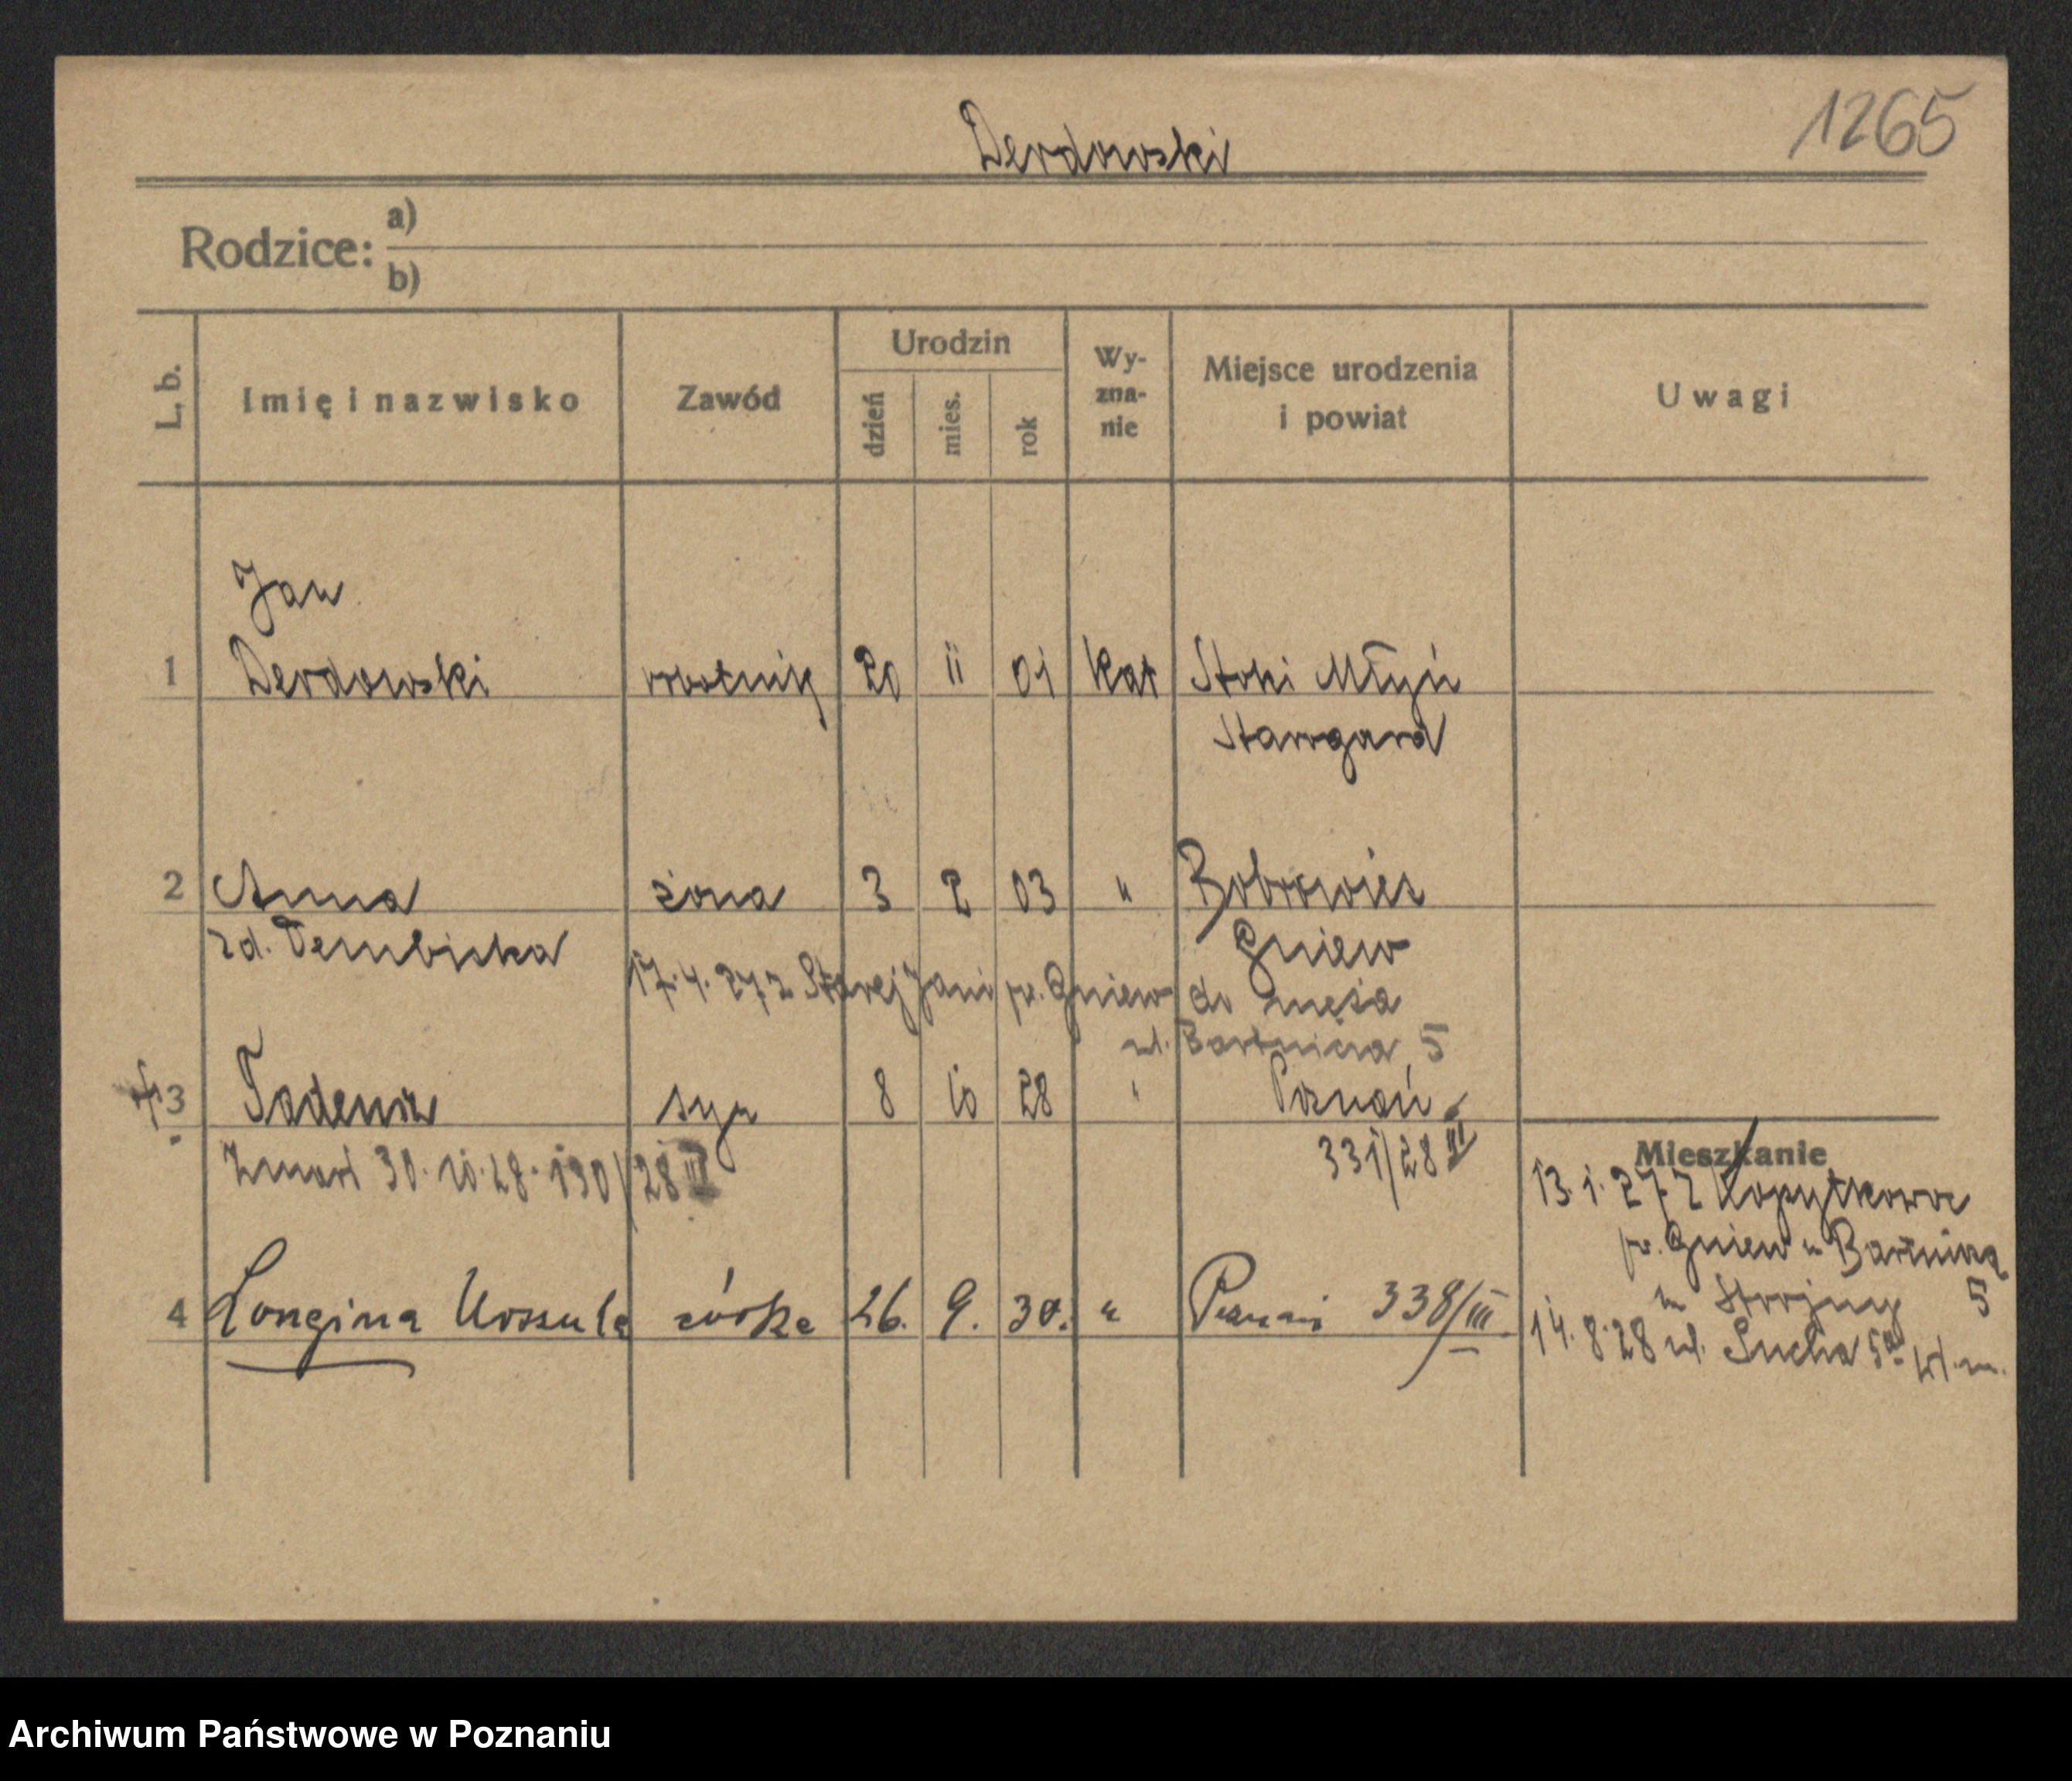 1265
Derdowski
Rodzice: a)
b)
L. b. Imię i nazwisko Zawód Urodzin dzień mies. rok Wyznanie Miejsce urodzenia i powiat Uwagi
Jan
1 Derdowski robotnik 20 11 01 kat Stoki Młyń
Starogard
2 Anna żona 3 2 03 " Bobrowiec
zd. Dembicka Gniew
17.4.27 z Starej Jani pw. Gniew do męża
ul. Bartnicza 5
3 Tadeusz syn 8 10 28 " Poznań
331/28 III
Zmarł 30.10.28. 1901/28 III
Mieszkanie
13.1.27 z Kopytkowa
pw. Gniew Bartnicza
5
4 Longina Urszula córka 26. 9. 30. " Poznań 338/III.
14.8.28 ul. Sucha 5a
Archiwum Państwowe w Poznaniu